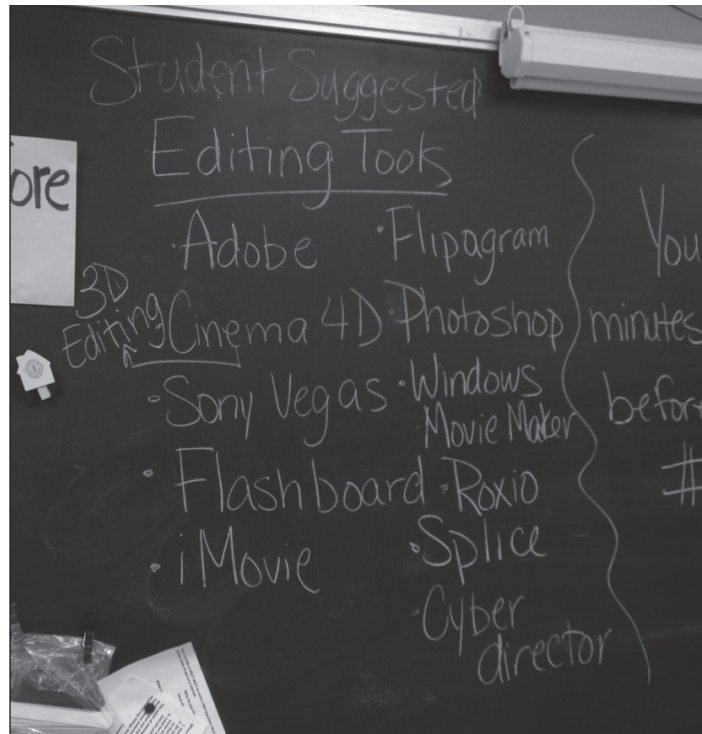 Student Suggested
Editing Tools
ore
· Adobe
3D
Editing
Cinema 4D
· Sony Vegas
· Flashboard
· iMovie
· Flipagram
· Photoshop
· Windows
Movie Maker
· Roxio
· Splice
· Cyber
director
You
minutes
before
#